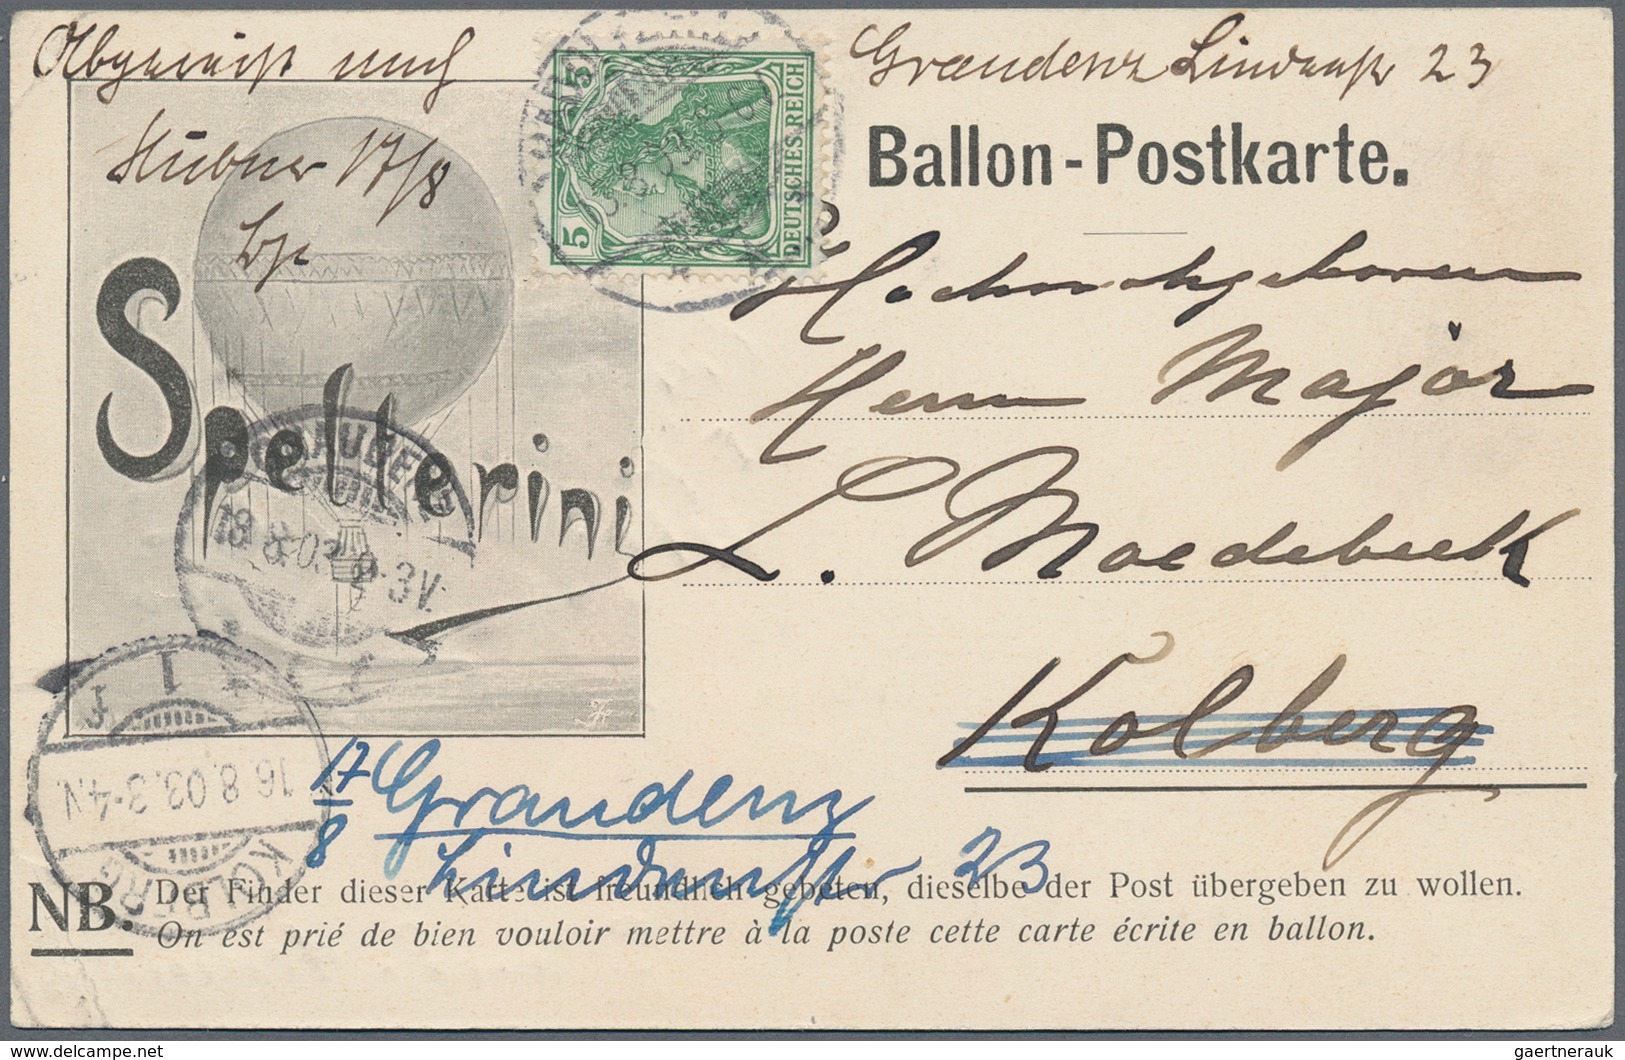 Abgereist nach
Graudenz Lindenstr 23
Hübner 17/8
Ballon-Postkarte.
5 5
DEUTSCHES REICH
Hochwohlgeboren
Herrn Major
Spelterini
L. Moedebeck
GRAUDENZ
18.8.03
Kolberg
16.8.03.3-4.N.
KOLBERG
17/8 Graudenz
Lindenstr 23
NB. Der Finder dieser Karte ist freundlich gebeten, dieselbe der Post übergeben zu wollen.
On est prié de bien vouloir mettre à la poste cette carte écrite en ballon.
gaertnerauk